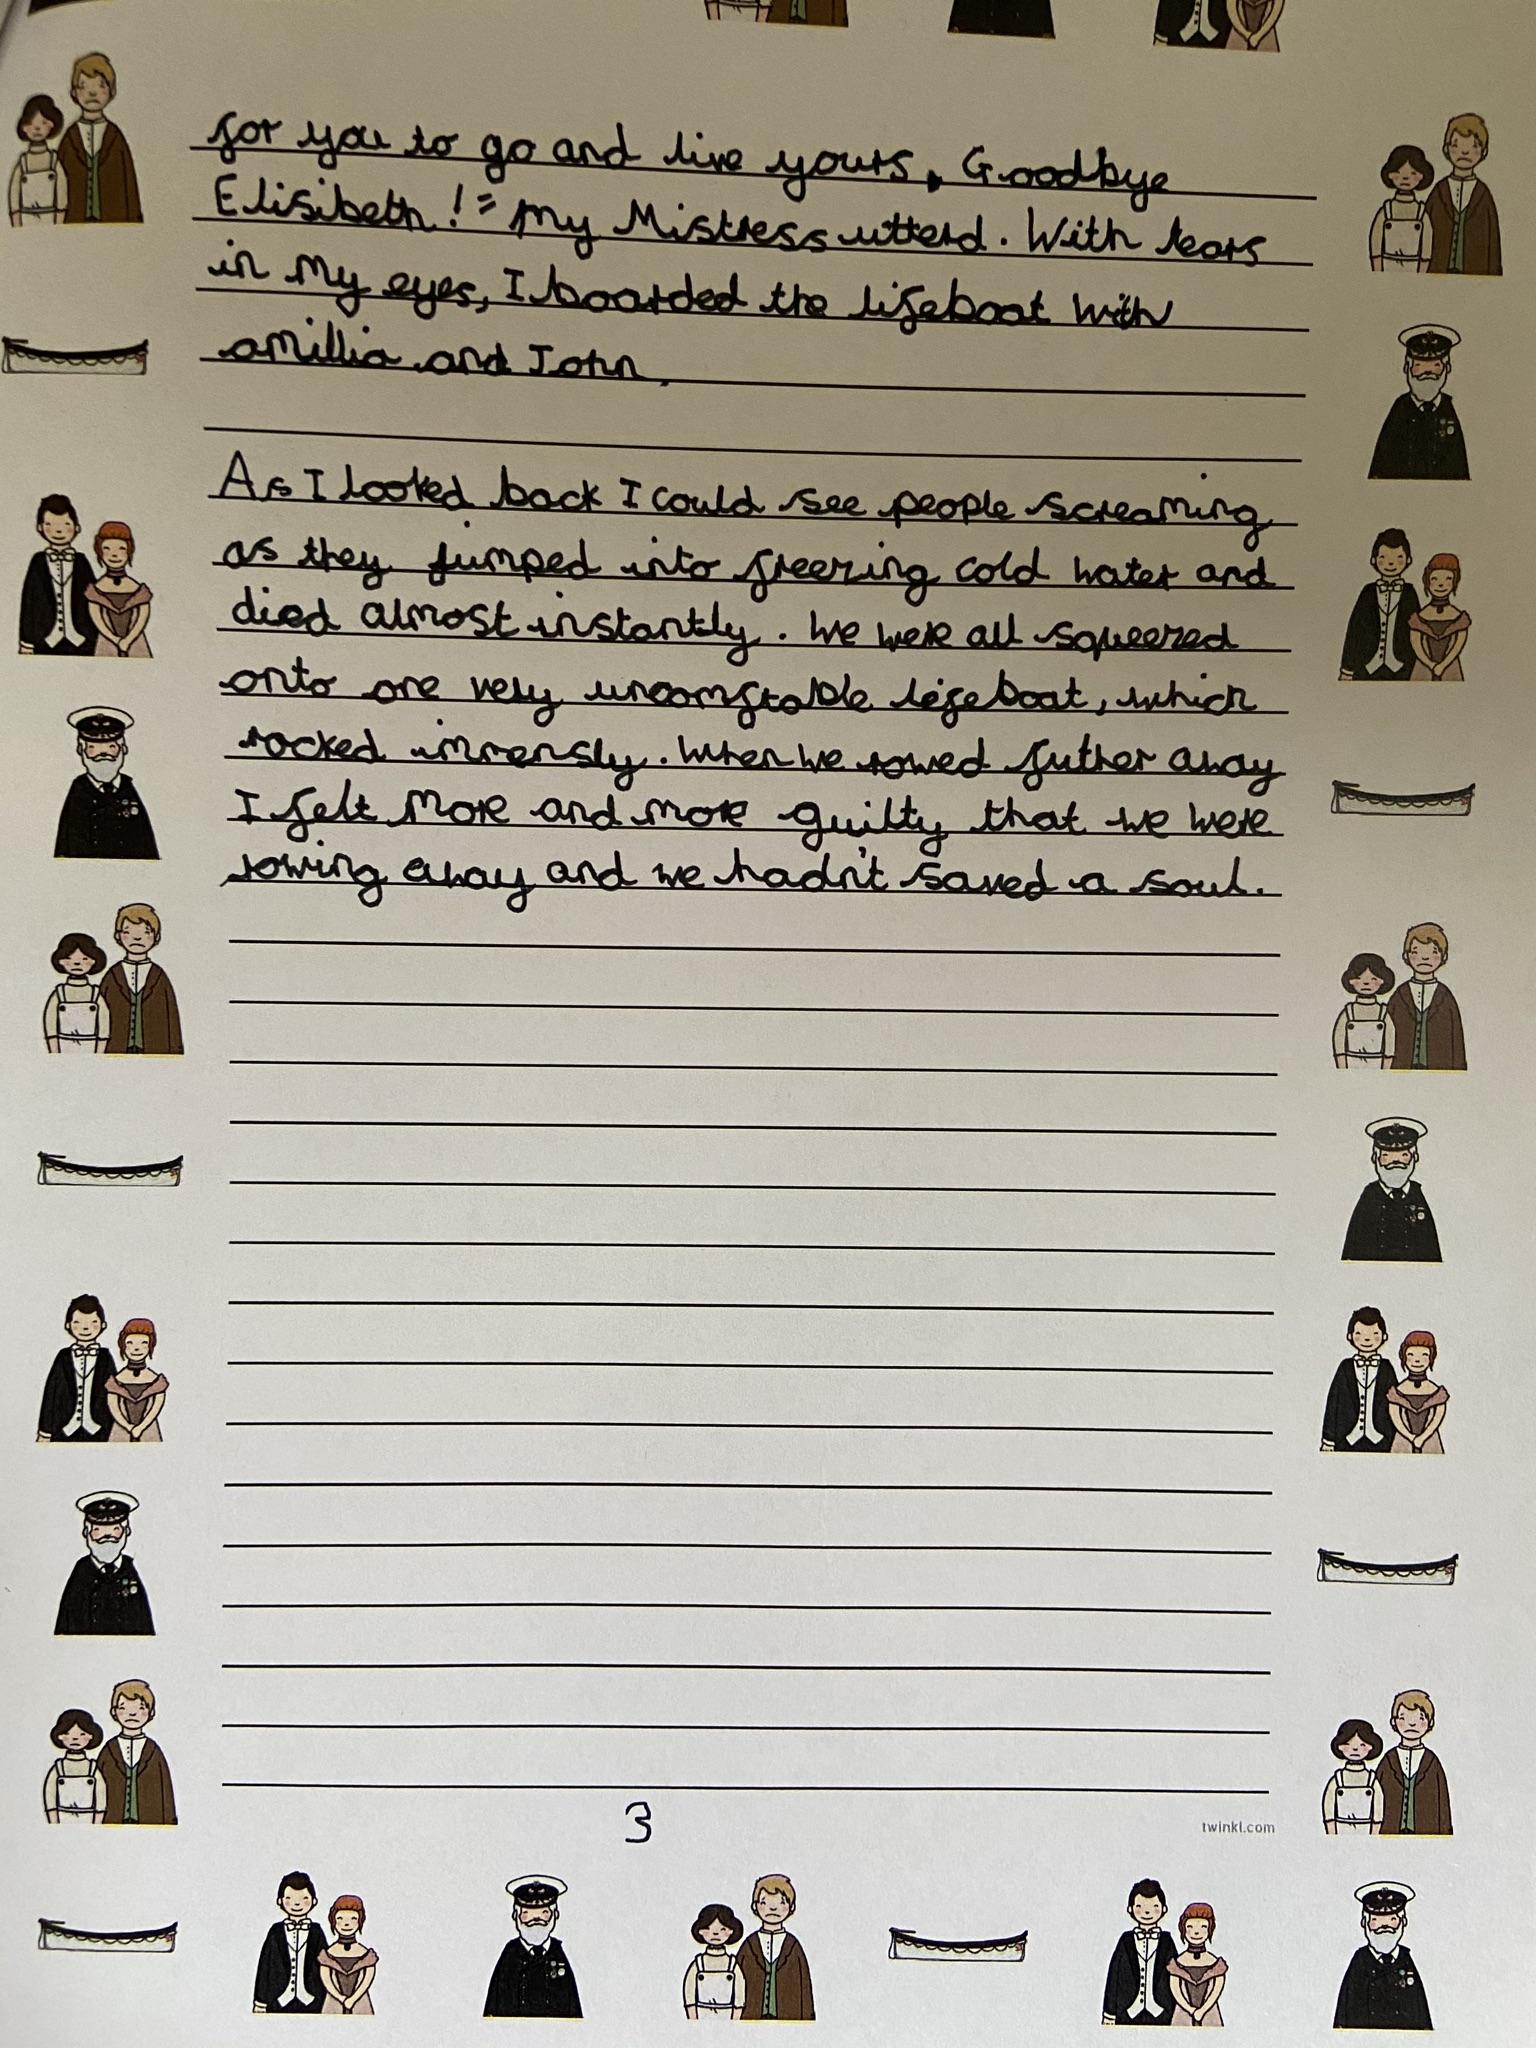 for you to go and live yours. Goodbye
Elisibeth!" my Mistress utterd. With tears
in my eyes, I boarded the lifeboat with
amillia and John.
As I looked back I could see people screaming
as they jumped into freezing cold water and
died almost instantly. We were all squeezed
onto one very uncomftable lifeboat, which
rocked immensly. When we rowed futher away
I felt more and more guilty that we were
rowing away and we hadn't saved a soul.
3
twinkl.com